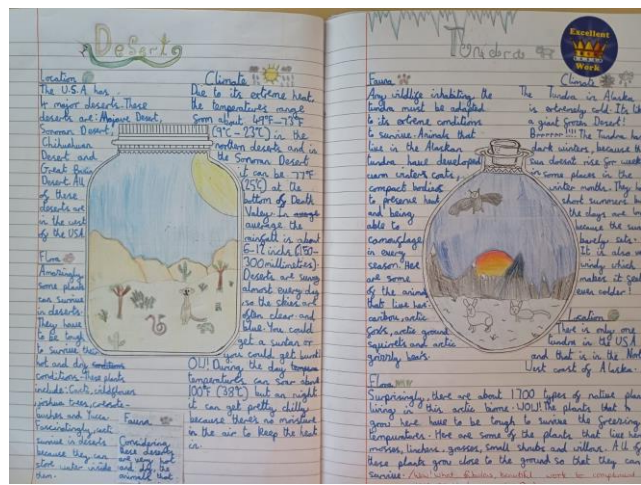 Desert
Location
The U.S.A has
4 major deserts. These
deserts are: Mojave Desert,
Sonoran Desert,
Chihuahuan
Desert and
Great Basin
Desert. All
of these
deserts are
in the west
of the USA.
Flora
Amazingly,
some plants
can survive
in deserts.
They have
to be tough
to survive the
hot and dry conditions
conditions. These plants
include: Cacti, wildflowers
joshua trees, creosote
bushes and Yucca.
Fascinatingly, cacti
survive in deserts
because they can
store water inside
them.
Fauna
Considering
these deserts
are very hot
and dry, the
animals that
Climate
Due to its extreme heat,
the temperatures range
from about 49°F-73°F
(9°C-23°C) in the
northern deserts and in
the Sonoran Desert
it can be 77°F
(25°C) at the
bottom of Death
Valley. In average
average the
rainfall is about
6-12 inchs (150-
300 millimetres).
Deserts are sunny
almost every day
so the skies are
often clear and
blue. You could
get a suntan or
you could get burnt
OU! During the day tempera
temperatures can soar above
100°F (38°C) but an night
it can get pretty chilly
because there's no moisture
in the air to keep the heat
in.
Tundra
Excellent
Work
Fauna
Any wildlife inhabiting the
tundra must be adapted
to its extreme conditions
to survive. Animals that
live in the Alaskan
tundra have developed
warm winters coats,
compact bodies
to preserve heat
and being
able to
camouflage
in every
season. Here
are some
of the animals
that live here:
caribou, arctic
foxs, arctic ground
squirrels and arctic
grizzly bears.
Climate
The Tundra in Alaska
is extremely cold. It's like
a giant frozen Desert!
Brrrrrr!!! The Tundra has
dark winters, because the
sun doesnt rise for weeks
in some places in the
winter months. They
short summers but
the days are
because the sun
barely sets.
It is also
windy which
makes it feel
even colder!
Location
There is only one
Tundra in the USA
and that is in the North
West coast of Alaska.
Flora
Surprisingly, there are about 1700 types of native plants
living in this arctic biome. WOW! The plants that
grow here have to be tough to survive the freezing
tempuratures. Here are some of the plants that live here:
mosses, linchens, grasses, small shrubs and willows. All of
these plants grow close to the ground so that they can
survive. Wow! What fabulous, beautiful work to compliment